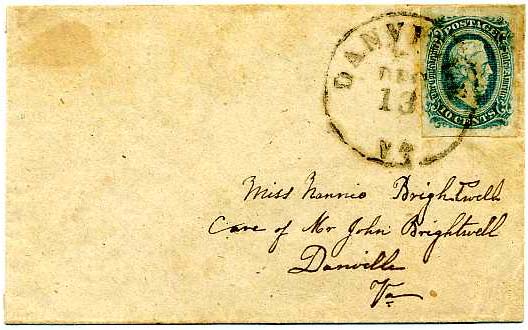 POSTAGE
10 CENTS
DANVI
DEC
13
VA
Miss Nannie Brightwell
Care of Mr John Brightwell
Danville
Va